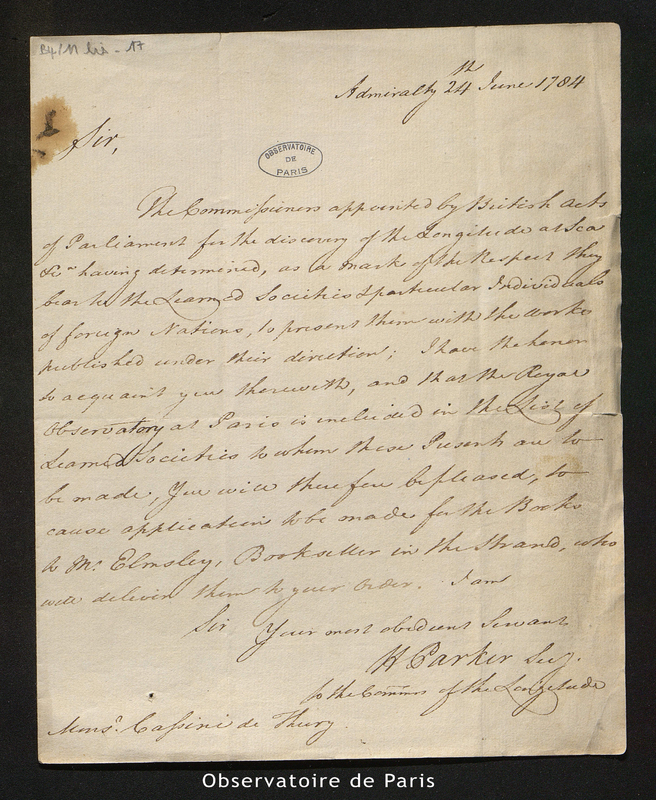 B4/11 bis - 17
Admiralty 24th June 1784
Sir,
OBSERVATOIRE
DE
PARIS
The Commissioners appointed by British Acts
of Parliament for the discovery of the Longitude at Sea
&ca having determined, as a mark of the Respect they
bear to the Learned Societies & particular Individuals
of foreign Nations, to present them with the Works
published under their direction; I have the honor
to acquaint you therewith, and that the Royal
Observatory at Paris is included in the List of
Learned Societies to whom these Presents are to
be made, You will therefore be pleased, to
cause application to be made for the Books
to Mr. Elmsley, Bookseller in the Strand, who
will deliver them to your Order. I am
Sir Your most obedient Servant
H Parker Secy.
to the Commrs of the Longitude
Monsr. Cassini de Thury.
Observatoire de Paris